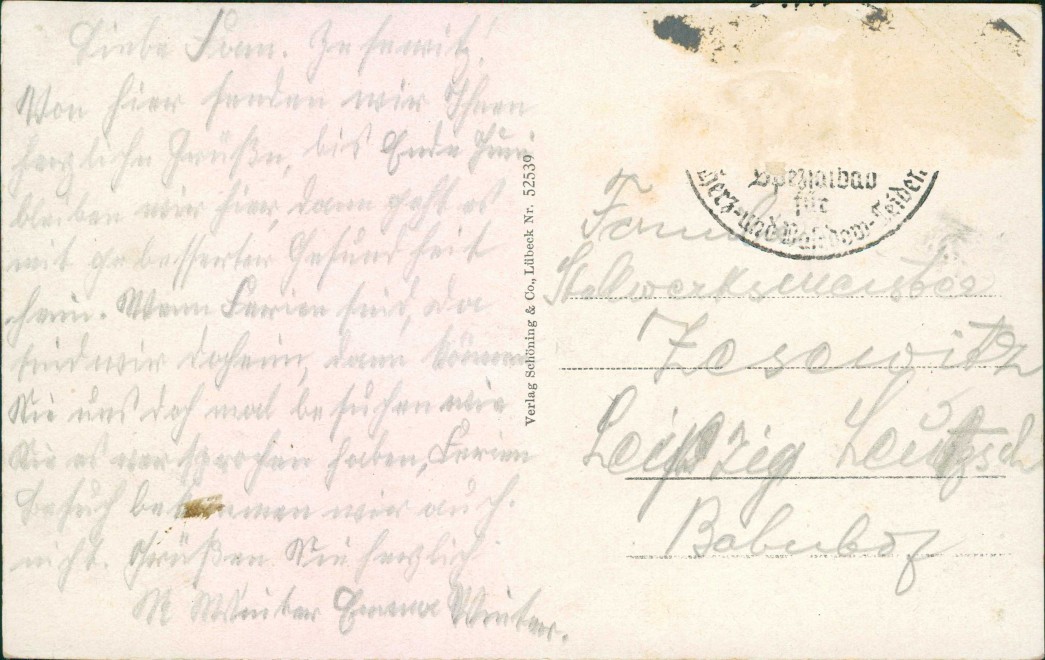 Liebe Fam. Zesewitz!
Von hier senden wir Ihnen
herzliche Grüße, bis Ende Juni
bleiben wir hier, dann geht es
mit gebesserter Gesundheit
heim. Wenn Ferien sind, da
sind wir daheim, dann können
Sie uns doch mal besuchen wie
Sie es versprochen haben, Ferien
besuch bekommen wir auch
nicht. Grüßen Sie herzlich
M Winter Emma Winter.
Verlag Schöning & Co., Lübeck Nr. 52539
Spezialbad
für
Herz- und Leiden
Stellwerksmeister
Zesewitz
Leipzig Leutzsch
Bahnhof